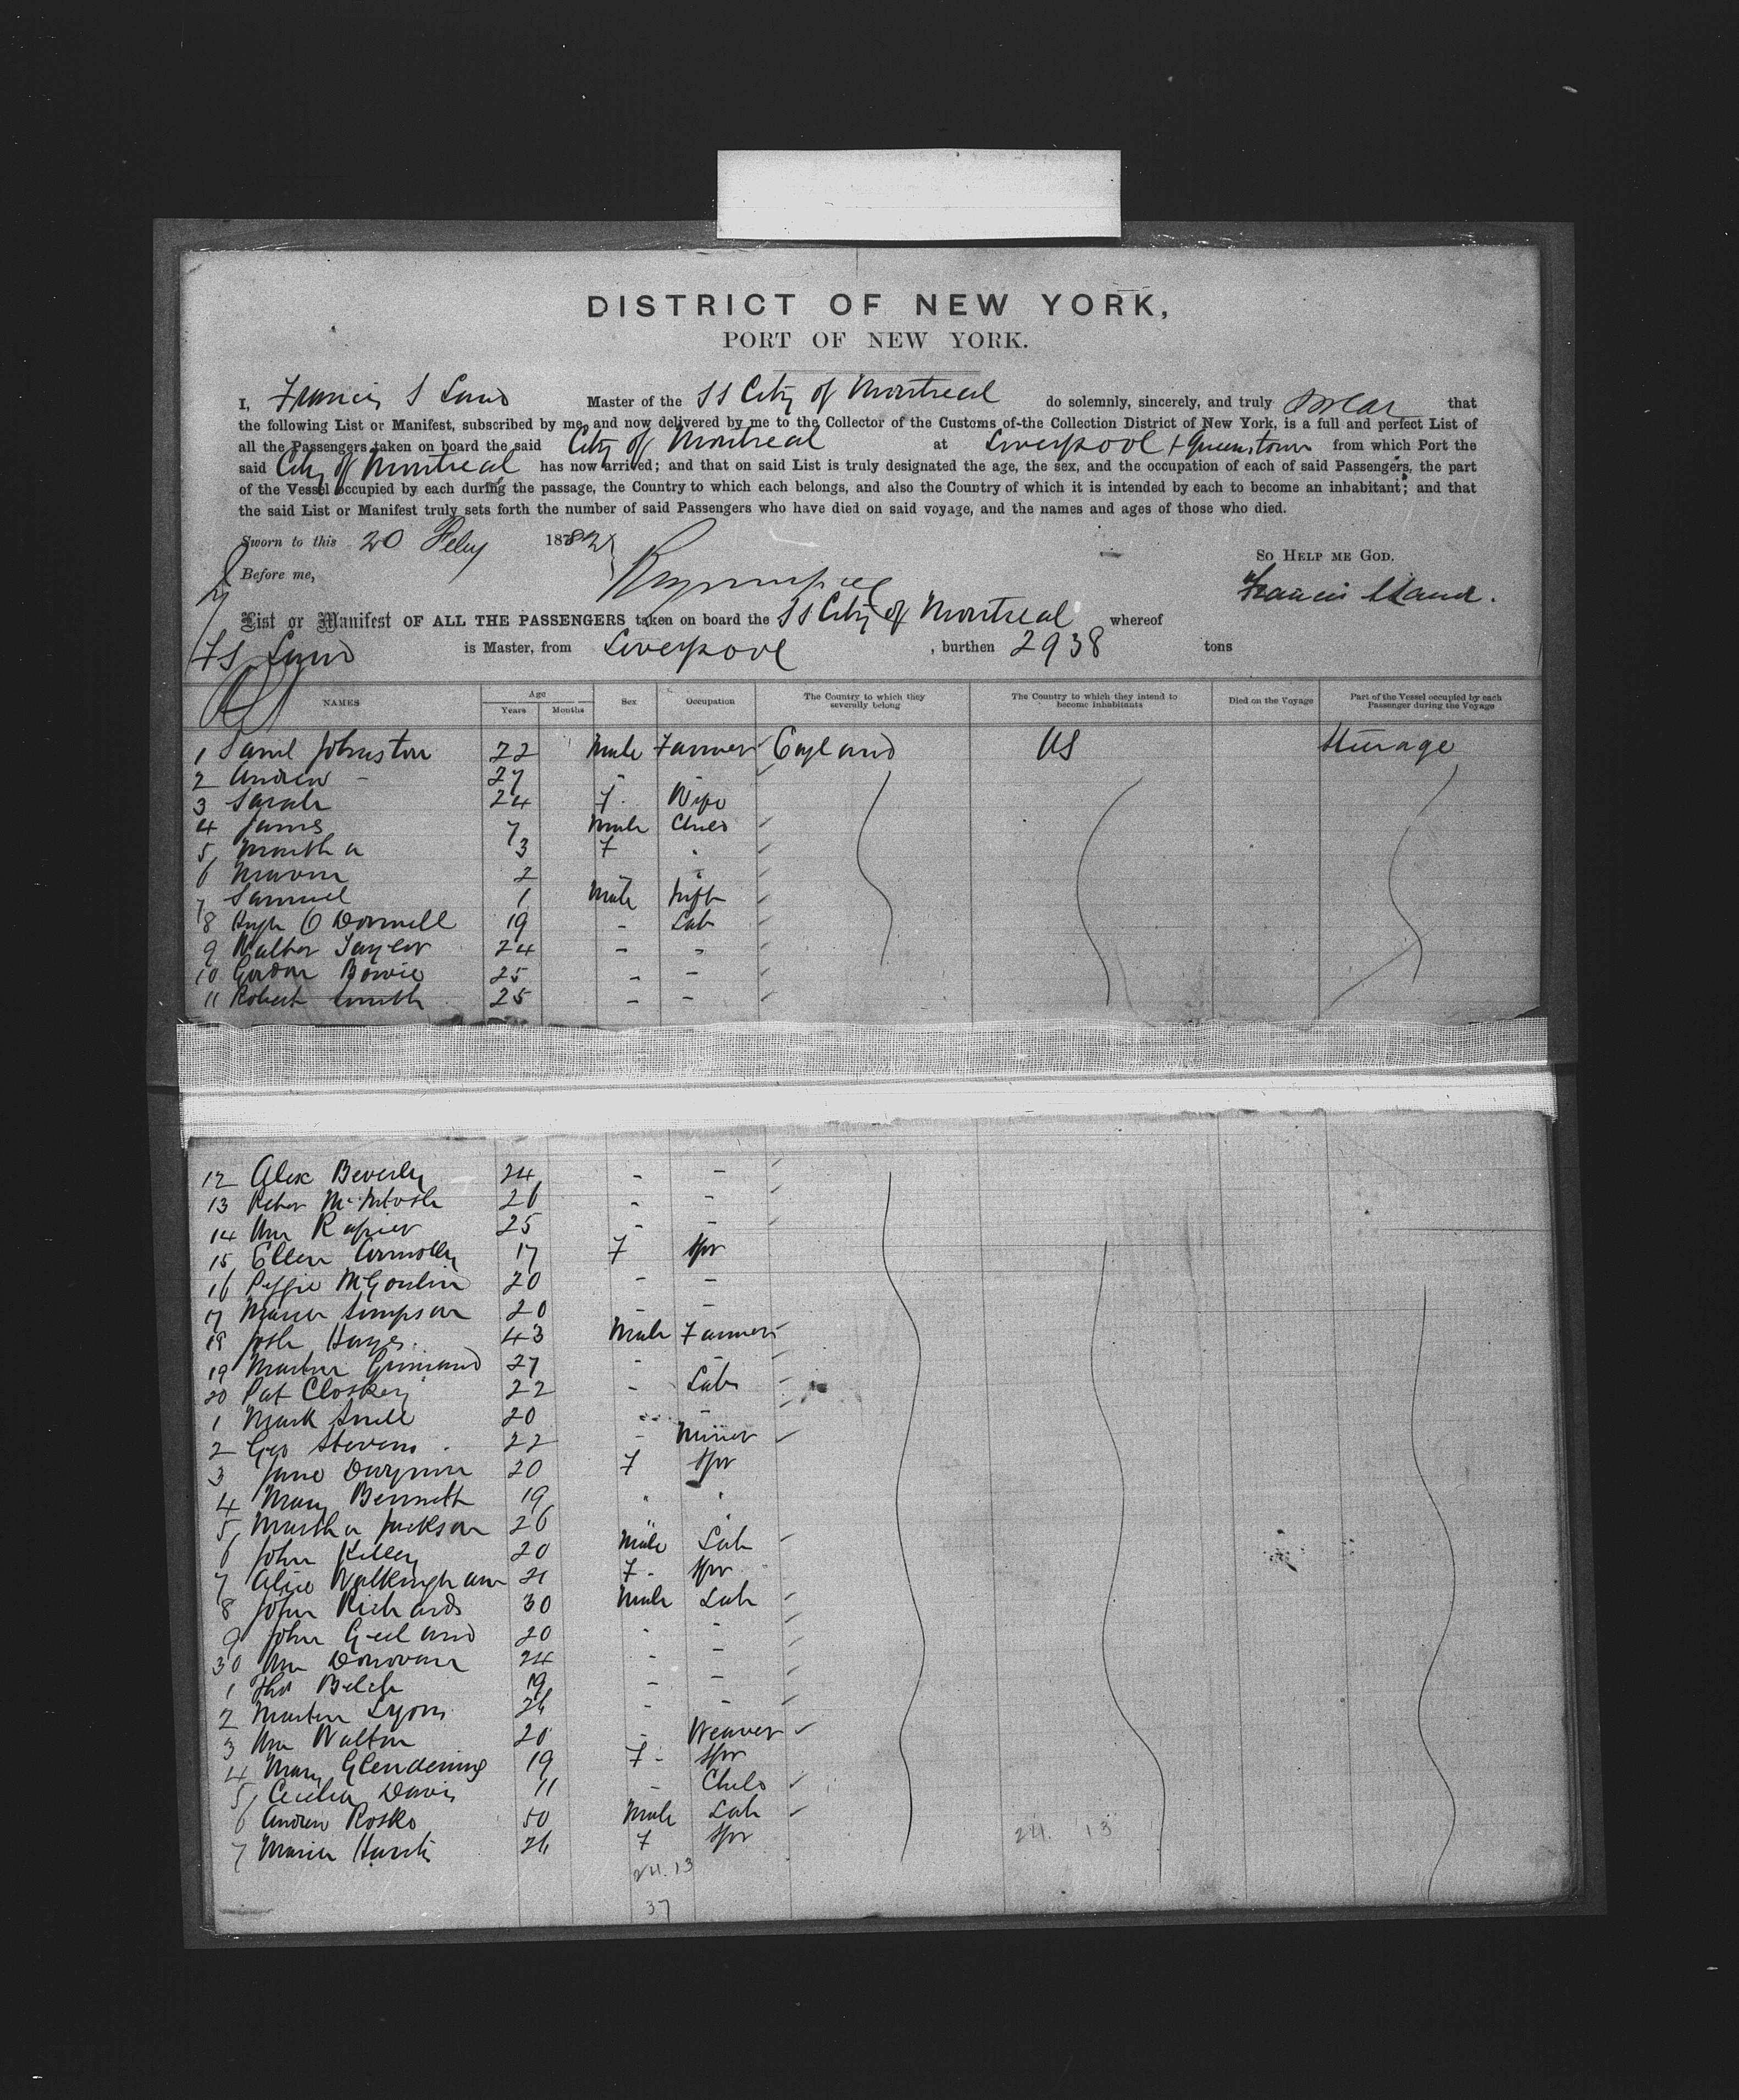 DISTRICT OF NEW YORK,
PORT OF NEW YORK.
I, Francis S Land Master of the SS City of Montreal do solemnly, sincerely, and truly swear that
the following List or Manifest, subscribed by me, and now delivered by me to the Collector of the Customs of the Collection District of New York, is a full and perfect List of
all the Passengers taken on board the said City of Montreal at Liverpool + Queenstown from which Port the
said City of Montreal has now arrived; and that on said List is truly designated the age, the sex, and the occupation of each of said Passengers, the part
of the Vessel occupied by each during the passage, the Country to which each belongs, and also the Country of which it is intended by each to become an inhabitant; and that
the said List or Manifest truly sets forth the number of said Passengers who have died on said voyage, and the names and ages of those who died.
Sworn to this 20 Feby 1882
So HELP ME GOD.
Before me,
Francis S Land.
List or Manifest OF ALL THE PASSENGERS taken on board the SS City of Montreal whereof
F S Land is Master, from Liverpool, burthen 2938 tons
NAMES Age Years Months Sex Occupation The Country to which they severally belong The Country to which they intend to become inhabitants Died on the Voyage Part of the Vessel occupied by each Passenger during the Voyage
1 Saml Johnston 22 Male Farmer England US Steerage
2 Andrew - 27 "
3 Sarah 24 F. Wife
4 James 7 Male Child
5 Martha 3 F "
6 2 " "
7 Samuel 1 Male Inft
8 Hugh O Donnell 19 - Lab
9 Walter Taylor 24 - -
10 Gordon Bowie 25 - -
11 Robert Smith 25 - -
12 Alex Beverly 24 - -
13 Peter McIntosh 26 - -
14 Wm Rapier 25 - -
15 Ellen Connolly 17 F Spr
16 20 - -
17 Maria Simpson 20 - -
18 Josh Hayes 43 Male Farmer
19 Martin 27 -
20 Pat Closkey 22 - Lab
1 Mark Snell 20 - -
2 Geo Stevens 22 - Miner
3 Jane 20 F Spr
4 Mary Bennett 19 " "
5 Martha Jackson 26 " "
6 John Kelley 20 Male Lab
7 Alice Walkingham 21 F - Spr
8 John Richards 30 Male Lab
9 John 20 - -
30 Wm Donovan 24 - -
1 Thos 19 - -
2 Martin Lyons 26 - -
3 Wm Walton 20 - Weaver
4 Mary Glendening 19 F - Spr
5 Cecelia Davis 11 - Child
6 Andrew Rosko 50 Male Lab
7 Maria 26 F Spr
24. 13
24. 13
37